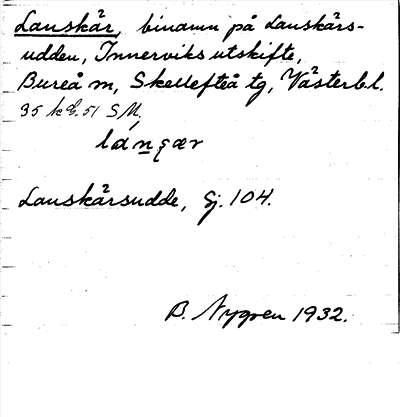 Lanskär, binamn på Lanskärs-
udden, Innerviks utskifte,
Bureå sn, Skellefteå tg, Västerb. l.
35 SM.
Lanskärsudde, Gj. 104.
B. Nygren 1932.